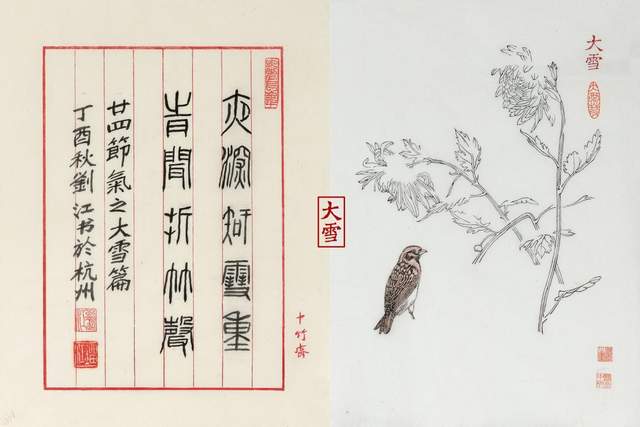 夜深知雪重
旹聞折竹聲
廿四節氣之大雪篇
丁酉秋劉江书於杭州
十竹齋
大雪
大雪